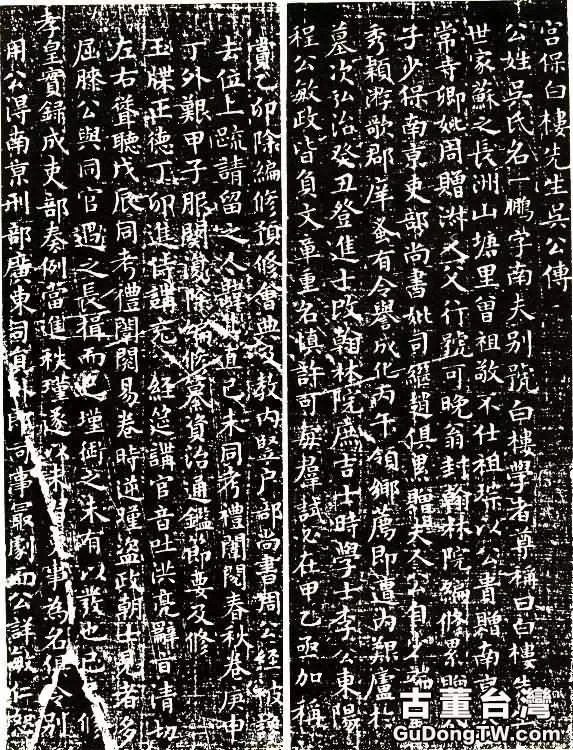 宫保白樓先生吳公傳
公姓吳氏名一鵬字南夫別號白樓學者尊稱曰白樓先
世家蘇之長洲山塘里曾祖敬不仕祖琮以公貴贈南京
常寺卿妣周贈淑人父行號可晚翁封翰林院編修累贈
子少保南京吏部尚書妣司繼趙俱累贈夫人公自少端
秀穎游歌郡庠蚤有令譽成化丙午領鄉薦即遭內艱廬於
墓次弘治癸丑登進士改翰林院庶吉士時學士李公東陽
程公敏政皆負文章重名慎許可每羣試公在甲乙亟加稱
賞乙卯除編修預修會典及教內豎戶部尚書周公經被譖
去位上疏請留之人韙其直己未同考禮闈閱春秋卷庚申
丁外艱甲子服闋復除編修纂資治通鑑節要及修
玉牒正德丁卯進侍講充經筵講官音吐洪亮辭旨清切
左右聳聽戊辰同考禮闈閱易卷時逆瑾盜政朝士見者多
屈膝公與同官遇之長揖而已瑾銜之未有以發也己巳修
孝皇實錄成吏部奏例當進秩瑾遂以未習吏事為名但令別
用公得南京刑部廣東司員外郎司事最劇而公詳敏仁恕
古董台灣
GuDongTW.com